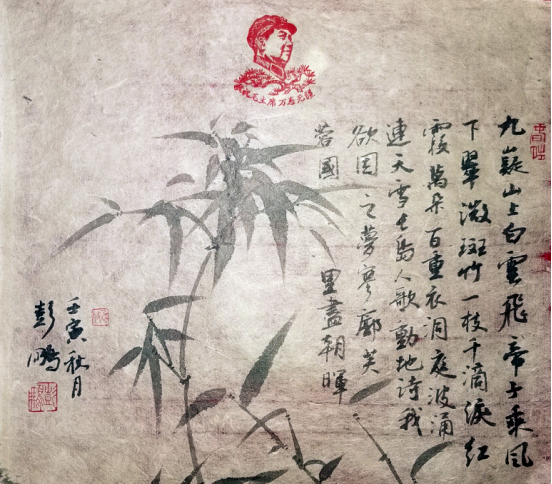 敬祝毛主席万寿无疆
九嶷山上白雲飛帝子乘风
下翠微斑竹一枝千滴淚红
霞萬朵百重衣洞庭波涌
連天雪长島人歌動地诗我
欲因之夢寥廓芙
蓉國里盡朝暉
壬寅秋月
彭鹏